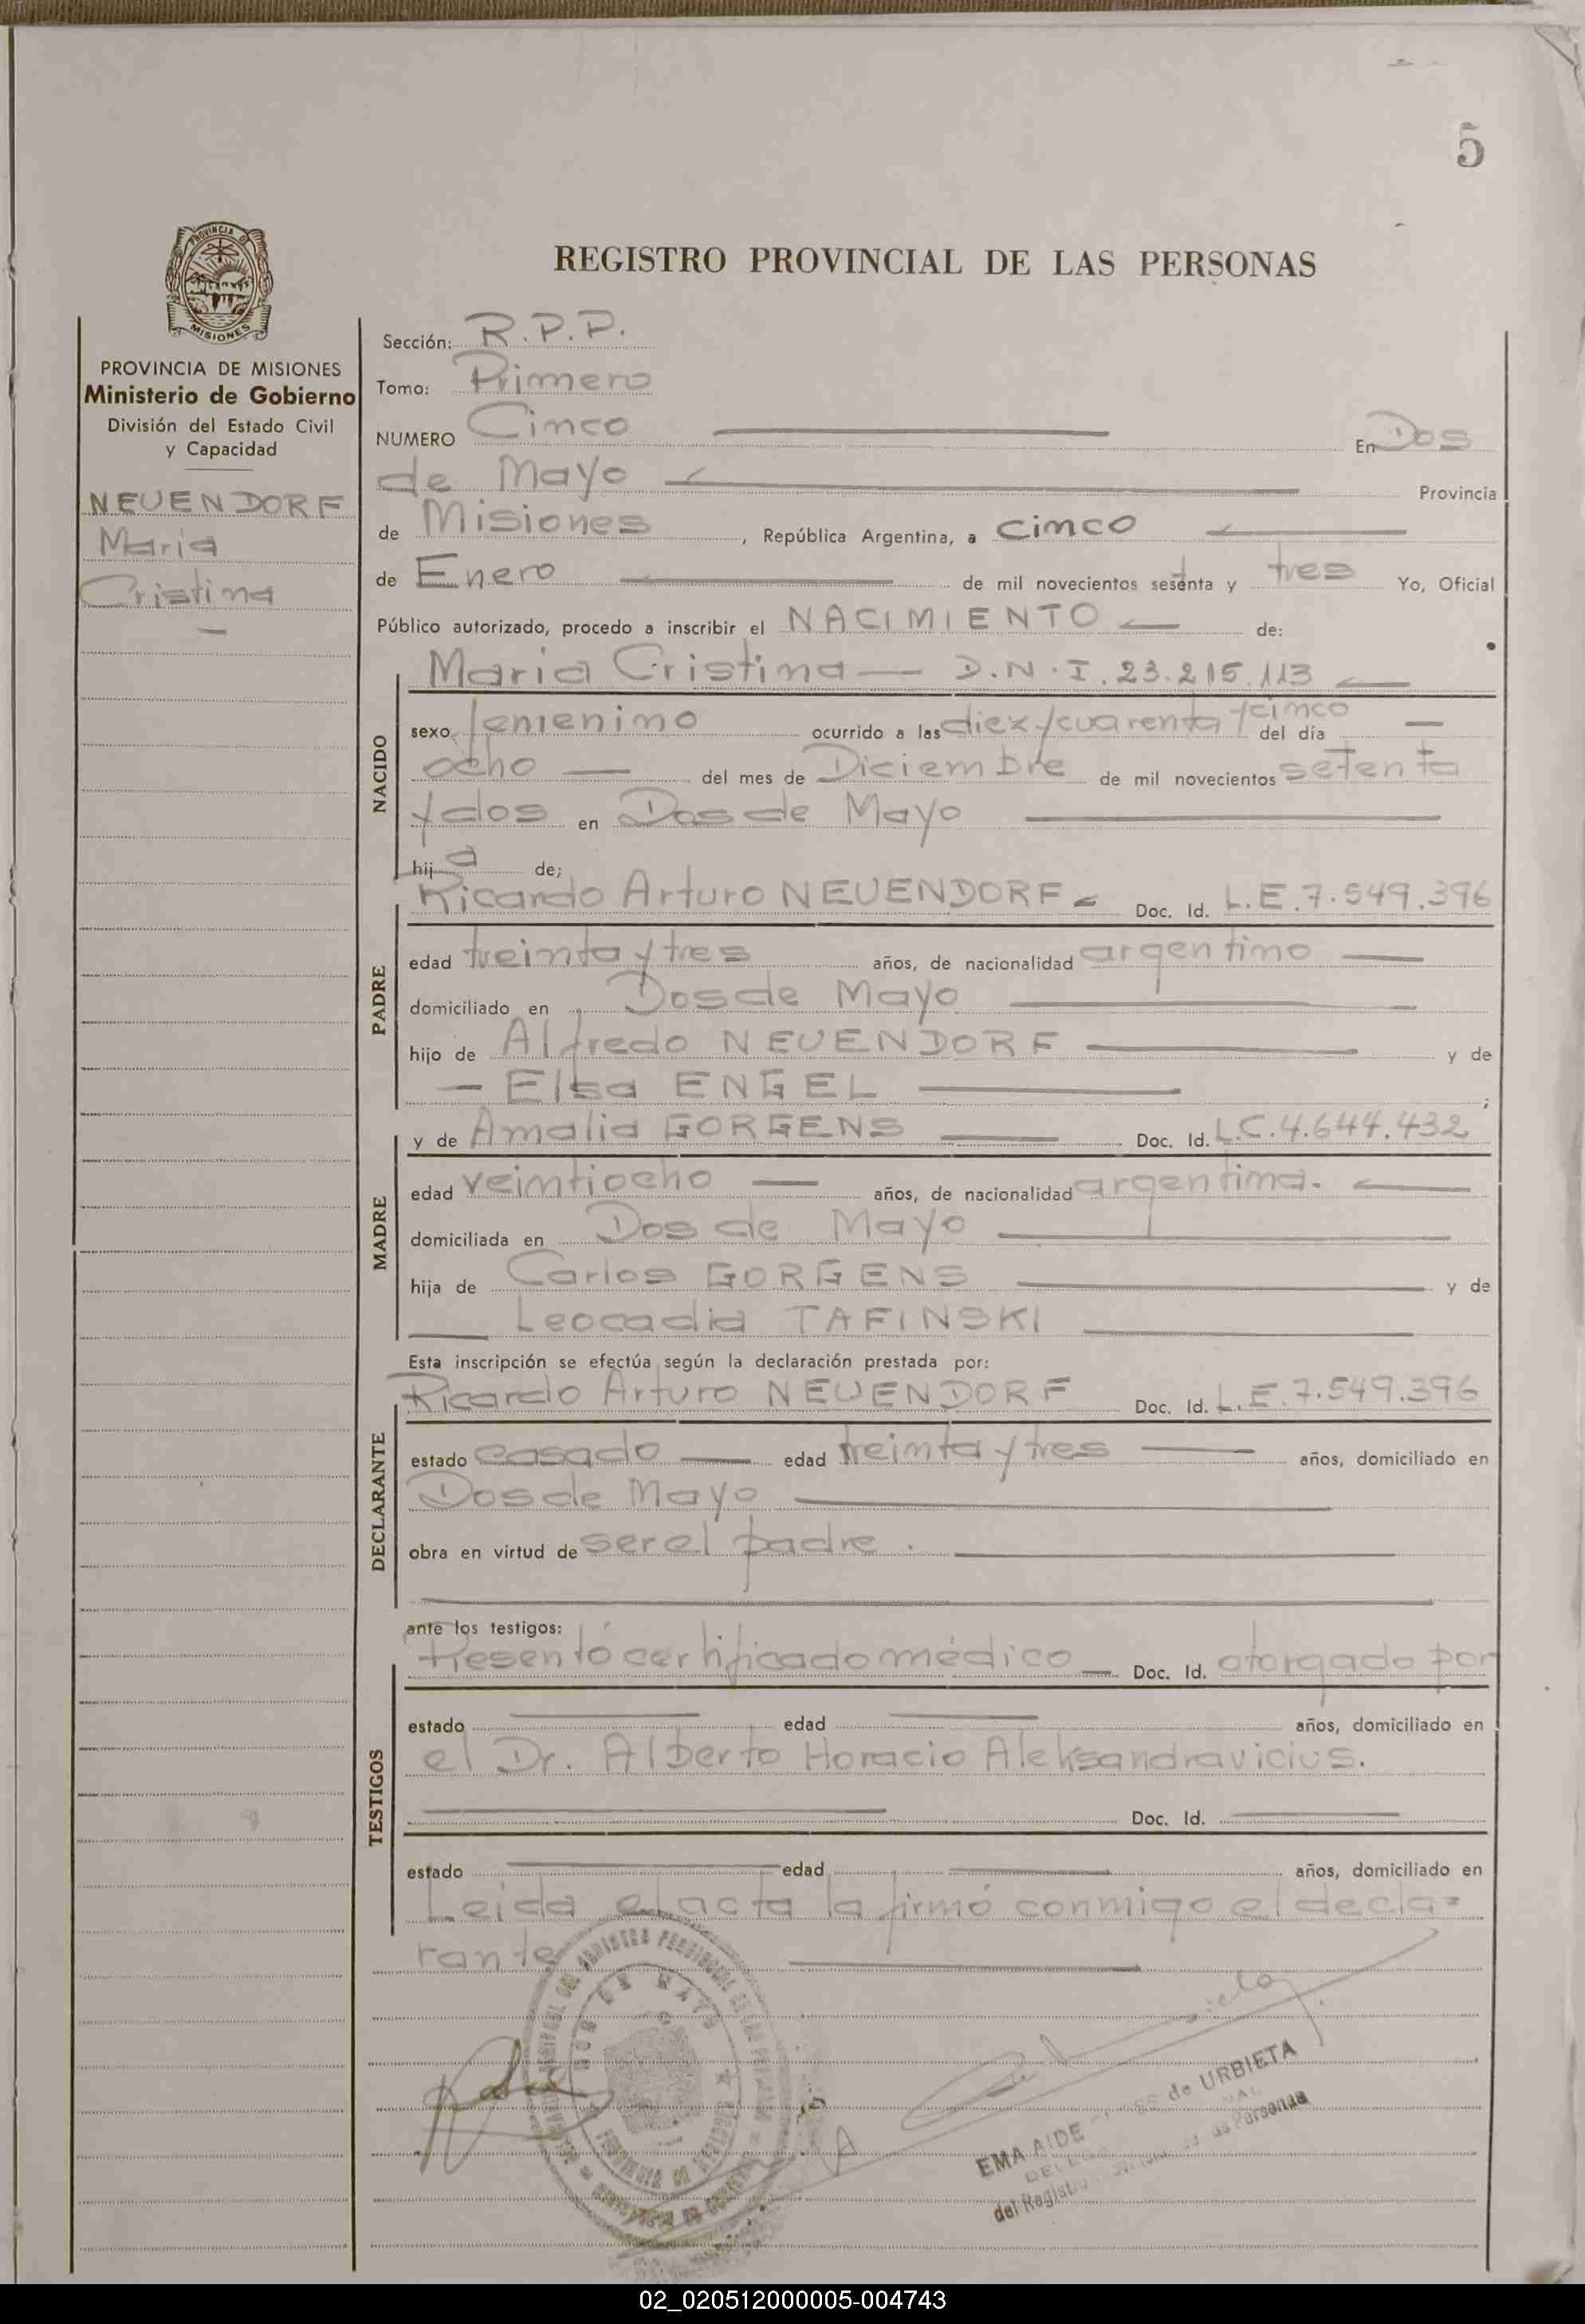 5
REGISTRO PROVINCIAL DE LAS PERSONAS
PROVINCIA DE
MISIONES
PROVINCIA DE MISIONES
Ministerio de Gobierno
División del Estado Civil
y Capacidad
NEUENDORF
Maria
Cristina
Sección: R.P.P.
Tomo: Primero
NUMERO Cinco En Dos
de Mayo Provincia
de Misiones, República Argentina, a cinco
de Enero de mil novecientos sesenta y tres Yo, Oficial
Público autorizado, procedo a inscribir el NACIMIENTO de:
Maria Cristina — D.N.I. 23.215.113
NACIDO
sexo femenino ocurrido a las diez y cuarenta y cinco del día
ocho — del mes de Diciembre de mil novecientos setenta
y dos en Dos de Mayo
hija de;
Ricardo Arturo NEUENDORF Doc. Id. L.E. 7.549.396
PADRE
edad treinta y tres años, de nacionalidad argentino
domiciliado en Dos de Mayo
hijo de Alfredo NEUENDORF y de
— Elsa ENGEL ;
y de Amalia GORGENS Doc. Id. L.C. 4.644.432
MADRE
edad veintiocho años, de nacionalidad argentina.
domiciliada en Dos de Mayo
hija de Carlos GORGENS y de
Leocadia TAFINSKI
Esta inscripción se efectúa según la declaración prestada por:
Ricardo Arturo NEUENDORF Doc. Id. L.E. 7.549.396
DECLARANTE
estado casado edad treinta y tres años, domiciliado en
Dos de Mayo
obra en virtud de ser el padre.
ante los testigos:
Presentó certificado médico — Doc. Id. otorgado por
TESTIGOS
estado edad años, domiciliado en
el Dr. Alberto Horacio Aleksandravicius.
Doc. Id.
estado edad años, domiciliado en
Leida el acta la firmó conmigo el decla=
rante
DOS DE MAYO
EMA AIDE de URBIETA
del Registro de las Personas
02_020512000005-004743